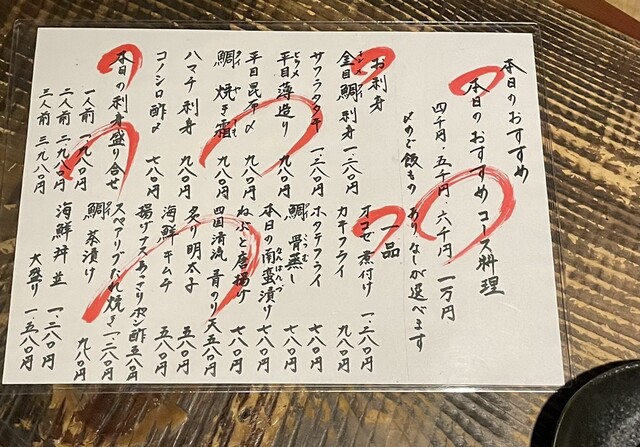 本日のおすすめ
本日のおすすめコース料理
四千円・五千円・六千円 一万円
〆のご飯もの ありなしが選べます
お刺身
金目鯛刺身 一、二八〇円
サワラタタキ 一、二八〇円
平目薄造り 九八〇円
平目昆布〆 九八〇円
鯛焼き霜 九八〇円
ハマチ刺身 九八〇円
コノシロ酢〆 七八〇円
本日の刺身盛り合せ
一人前 一、九八〇円
二人前 二、九八〇円
三人前 三、九八〇円
一品
オコゼ煮付け 一、二八〇円
カキフライ 九八〇円
ホタテフライ 七八〇円
鯛骨蒸し 七八〇円
本日の南蛮漬け 七八〇円
ねぶと唐揚げ 七八〇円
四国清流青のり天 五八〇円
炙り明太子 五八〇円
海鮮キムチ 五八〇円
揚げナスあっさりポン酢 五八〇円
スペアリブたれ焼き 一、二八〇円
鯛茶漬け 九八〇円
海鮮丼 並 一、二八〇円
大盛り 一、五八〇円